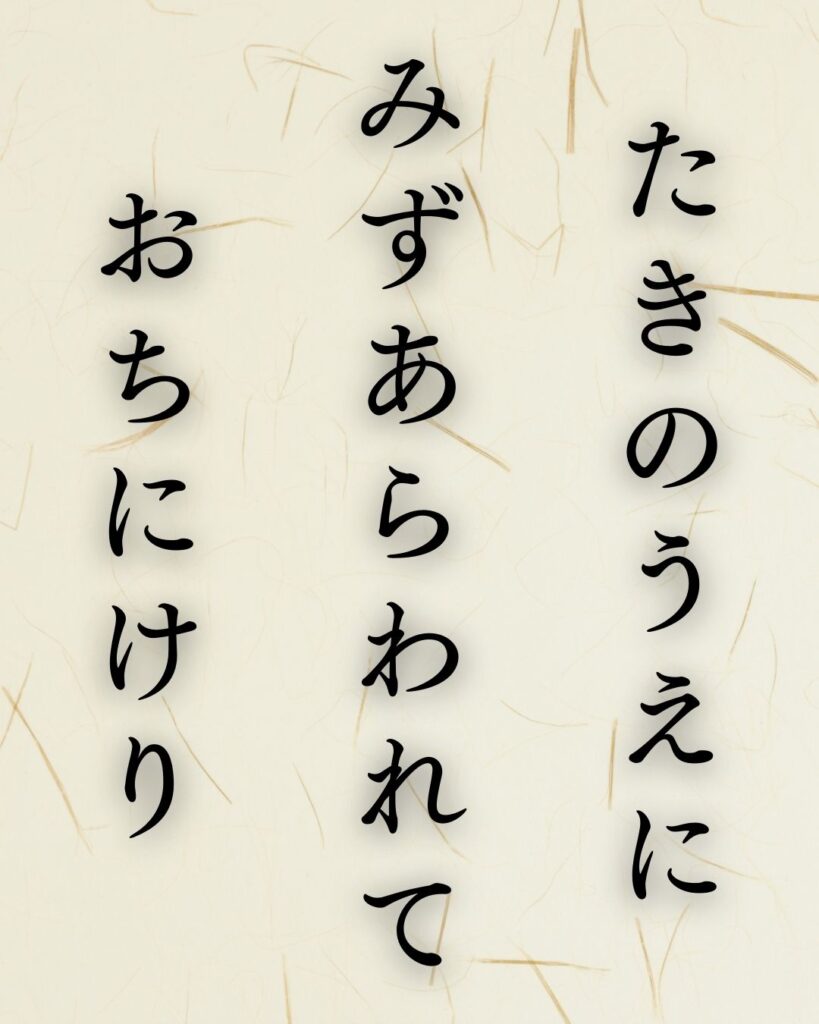 たきのうえに
みずあらわれて
おちにけり